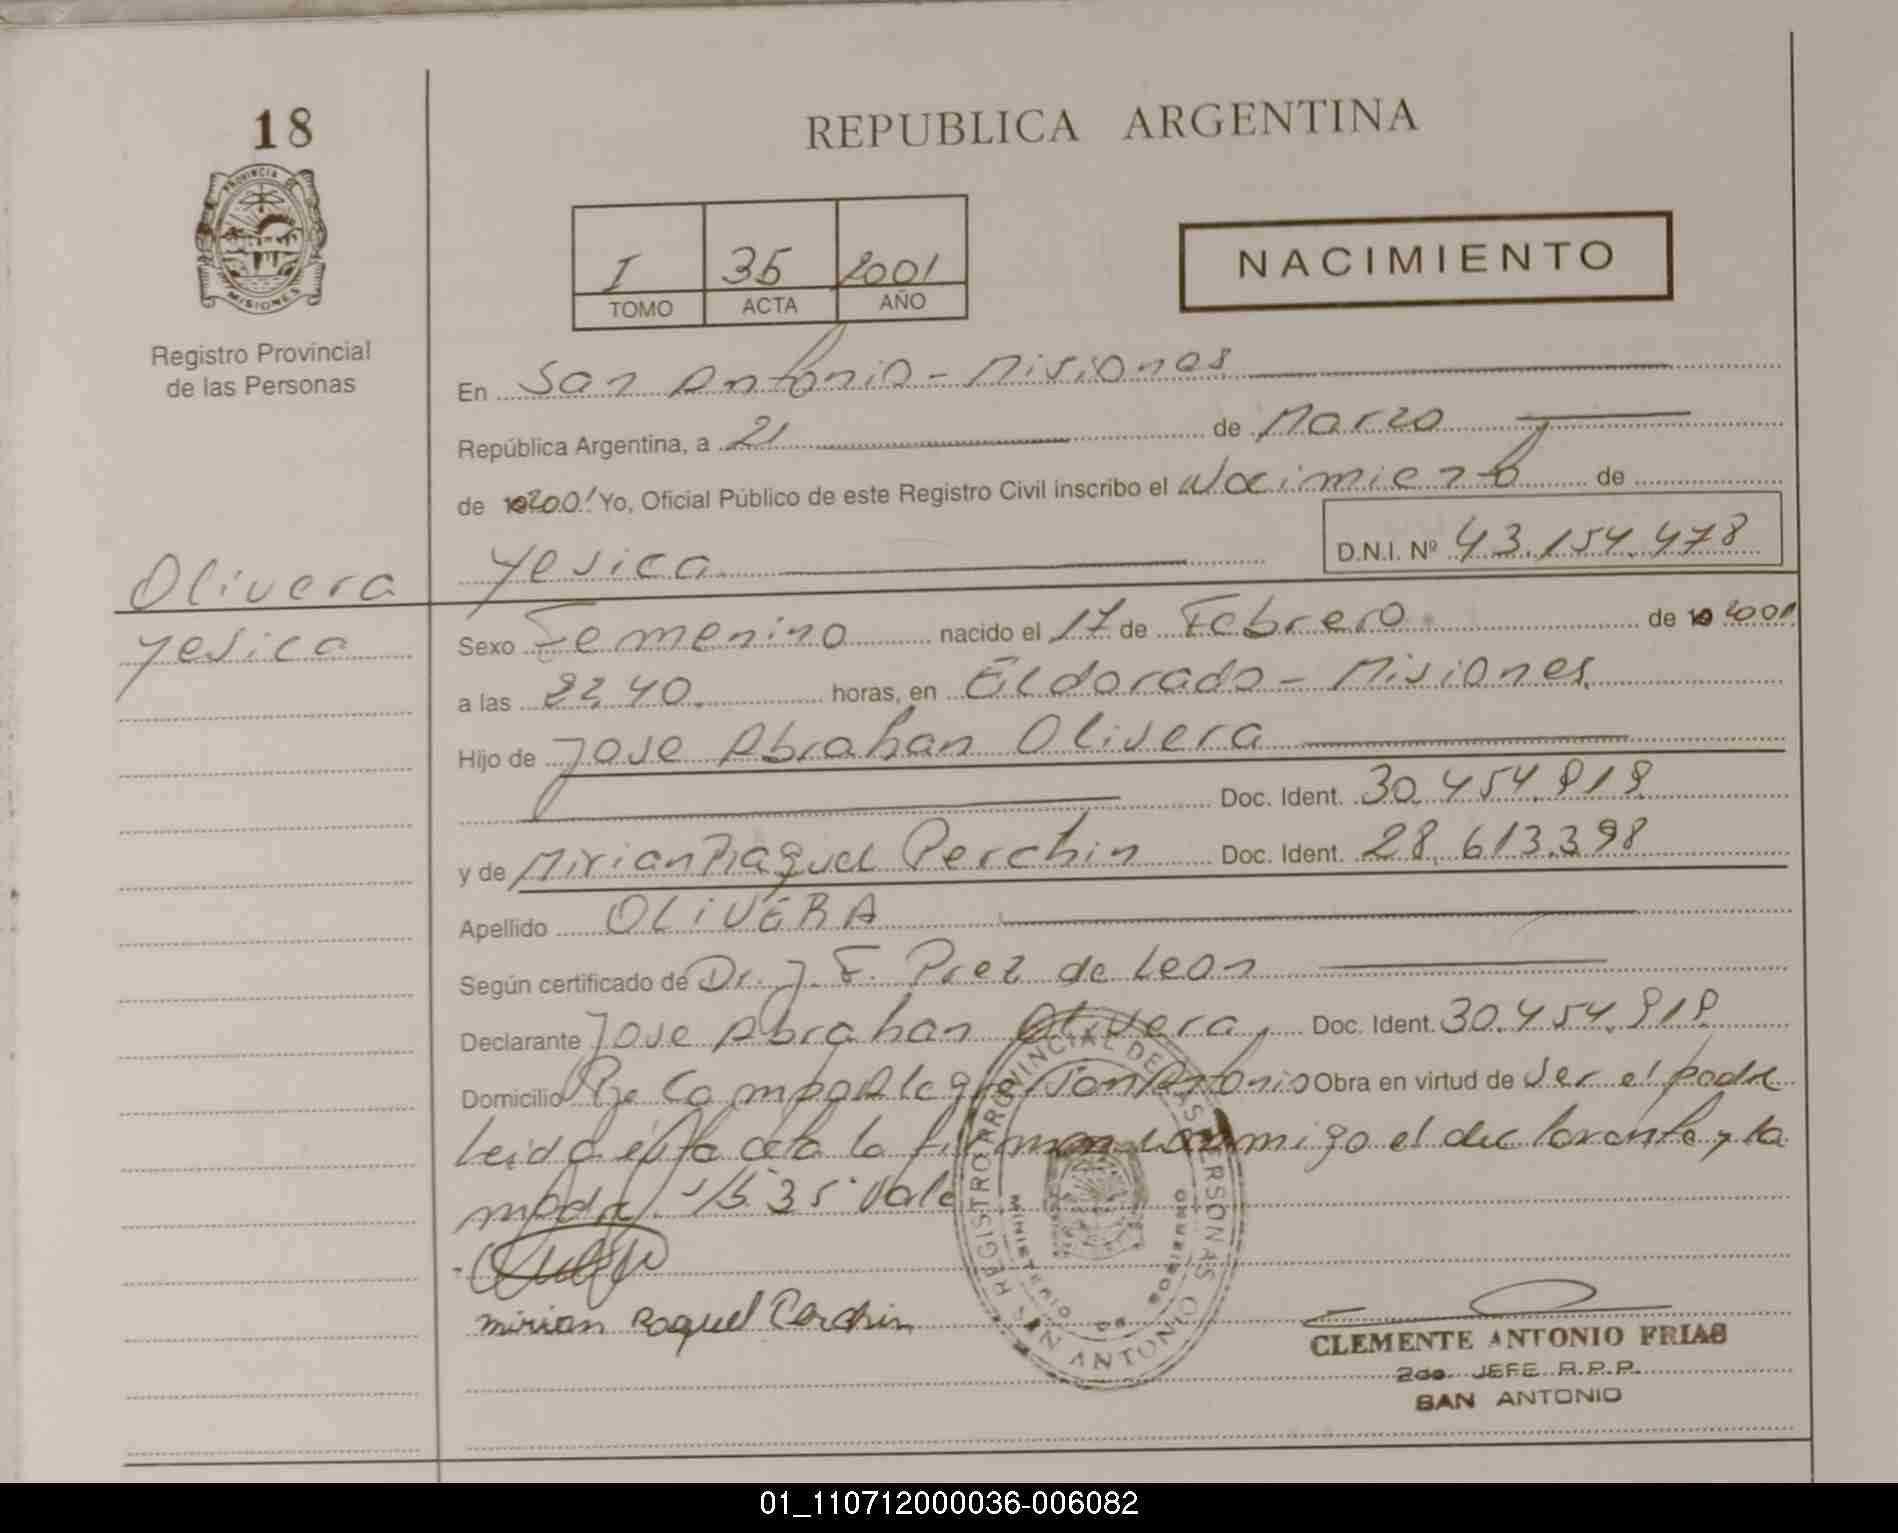 18
REPUBLICA ARGENTINA
PROVINCIA DE
MISIONES
Registro Provincial
de las Personas
I 35 2001
TOMO ACTA AÑO
NACIMIENTO
En San Antonio - Misiones
República Argentina, a 21 de Marzo
de 2001 Yo, Oficial Público de este Registro Civil inscribo el Nacimiento de
Yesica D.N.I. Nº 43.154.478
Olivera
Yesica
Sexo Femenino nacido el 17 de Febrero de 2001
a las 22,40. horas, en Eldorado - Misiones
Hijo de Jose Abrahan Olivera
Doc. Ident. 30.454.919
y de Mirian Raquel Perchin Doc. Ident. 28.613.398
Apellido OLIVERA
Según certificado de Dr. J. F. Prez de Leon
Declarante Jose Abrahan Olivera, Doc. Ident. 30.454.919
Domicilio Campo Alegre San Antonio Obra en virtud de ser el padre
Leida esta acta la firman conmigo el declarante y la
madre s/b 35 Vale
Mirian Raquel Perchin
REGISTRO PROVINCIAL DE LAS PERSONAS
MINISTERIO DE GOBIERNO
SAN ANTONIO
CLEMENTE ANTONIO FRIAS
2do JEFE R.P.P.
SAN ANTONIO
01_110712000036-006082